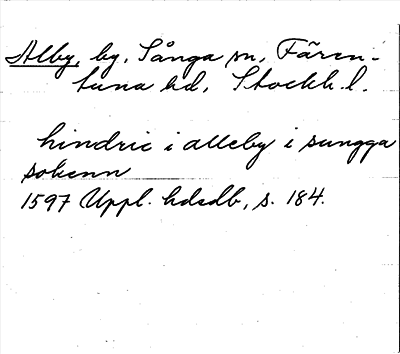 Alby, by, Sånga sn, Fären-
tuna hd, Stockh. l.
hindric i alleby i sungga
sokenn
1597 Uppl. hdsdb, s. 184.